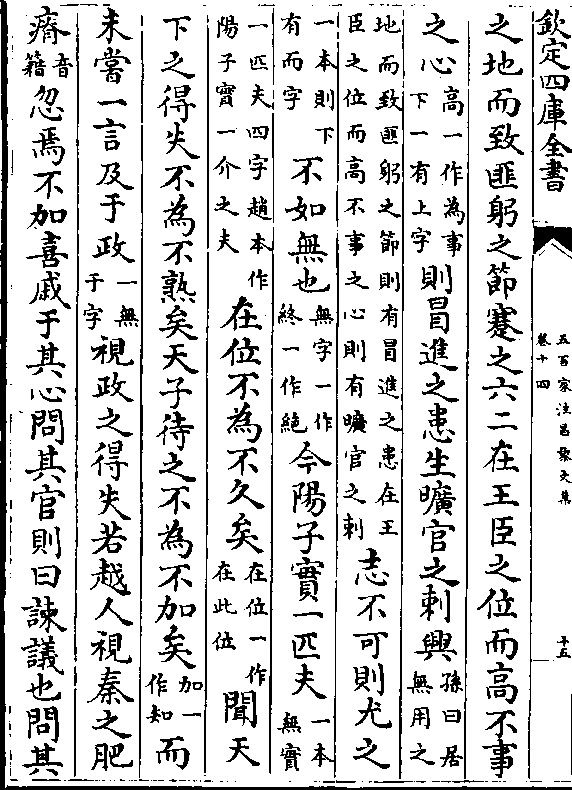 欽定四庫全書
五百家注昌黎文集
卷十四
十五
之地而致匪躬之節蹇之六二在王臣之位而高不事
之心高一作為事下一有上字則冒進之患生曠官之刺興孫曰居無用之
地而致匪躬之節則有冒進之患在王臣之位而高不事之心則有曠官之刺志不可則尤之
一本則下有而字不如無也無字一作終一作絶今陽子實一匹夫一本無實
一匹夫四字趙本作陽子實一介之夫在位不為不久矣在位一作在此位聞天
下之得失不為不熟矣天子待之不為不加矣加一作知而
未嘗一言及于政一無于字視政之得失若越人視秦之肥
瘠音籍忽焉不加喜戚于其心問其官則曰諫議也問其